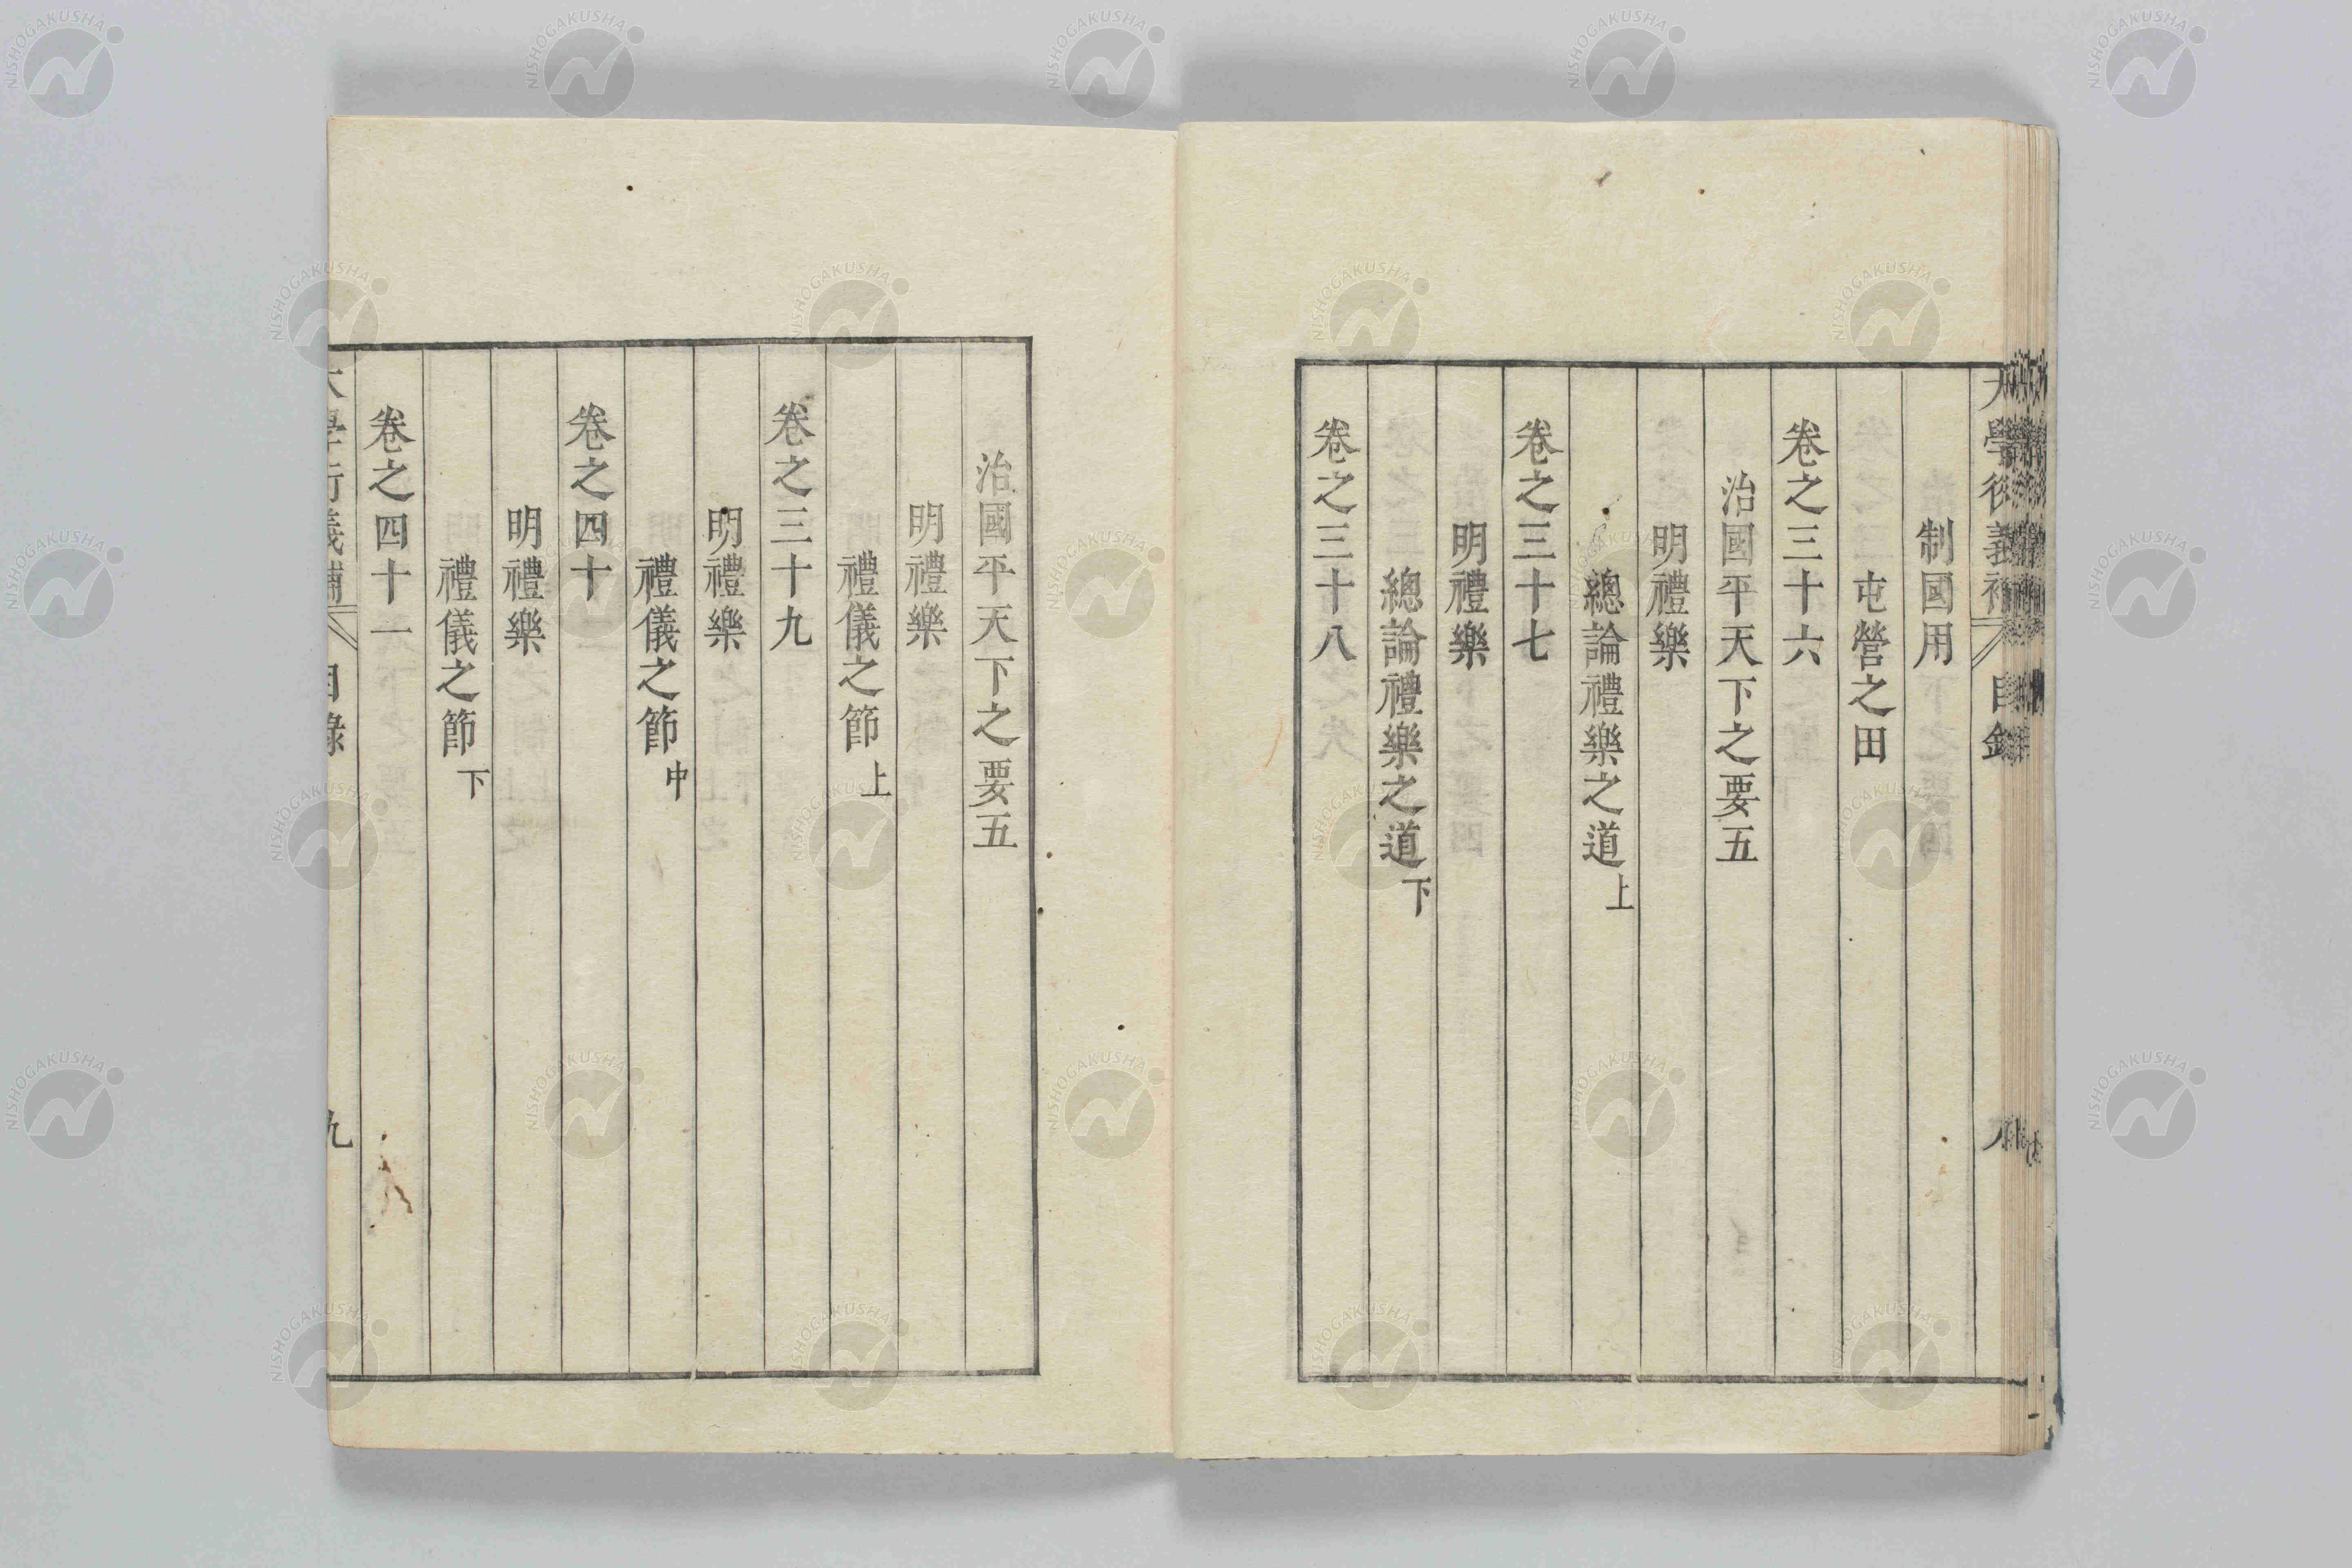 制國用
屯營之田
卷之三十六
治國平天下之要五
明禮樂
總論禮樂之道上
卷之三十七
明禮樂
總論禮樂之道下
卷之三十八
治國平天下之要五
明禮樂
禮儀之節上
卷之三十九
明禮樂
禮儀之節中
卷之四十
明禮樂
禮儀之節下
卷之四十一
九
NISHOGAKUSHA